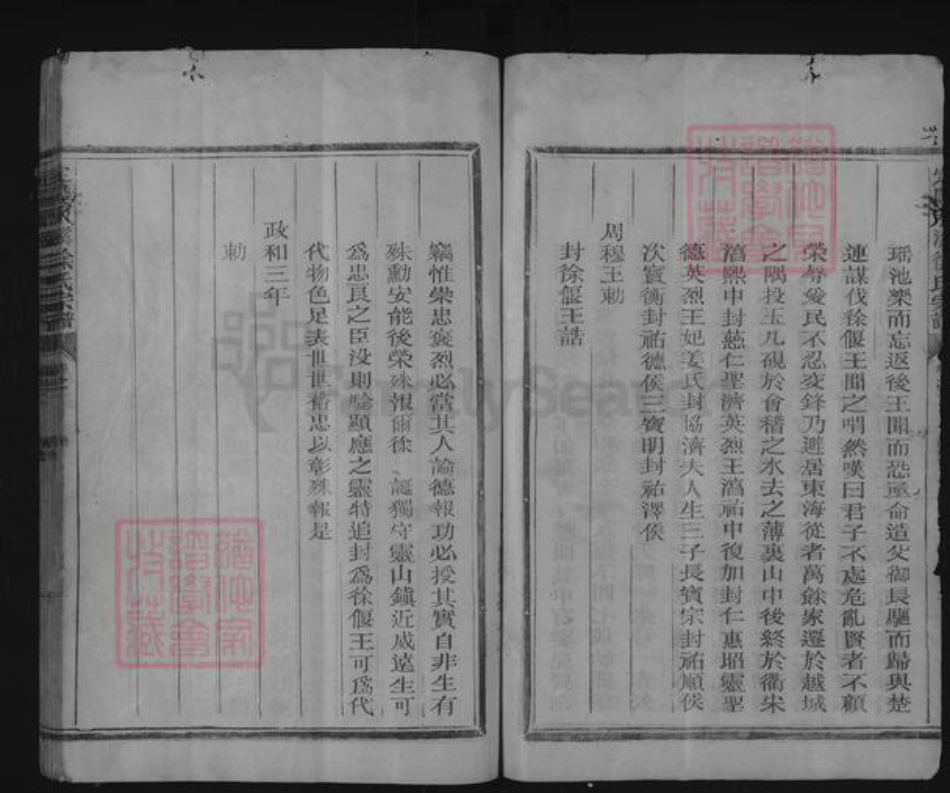 瑶池樂而忘返後王聞而恐亟命造父御長驅而歸與楚
連謀伐徐偃王聞之喟然嘆曰君子不處危亂賢者不顧
榮辱愛民不忍交鋒乃避居東海從者萬餘家遷於越城
之隅投玉几硯於會稽之水去之薄裏山中後終於衢宋
淳熙中封慈仁聖濟英烈王淳祐中復加封仁惠昭靈聖
德英烈王妃姜氏封協濟夫人生三子長寳宗封祐順侯
次寳衡封祐德侯三寳明封祐澤侯
周穆王勅
封徐偃王誥
竊惟崇忠褒烈必當其人論德報功必授其實自非生有
殊勳安能後榮殊報爾徐 誕獨守靈山鎮近威遠生可
爲忠良之臣没則
顯應之靈特追封爲徐偃王可爲代
代物色足表世世
忠以彰殊報是
政和三年
勅
徐氏宗譜
FamilySearch
猶他家
譜學會
收藏
猶他家
譜學會
收藏